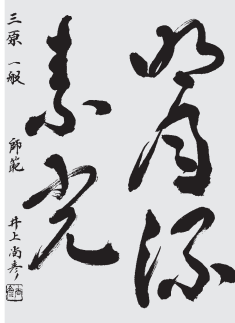 明月流
素光
三原 一般 師範 井上尚彦